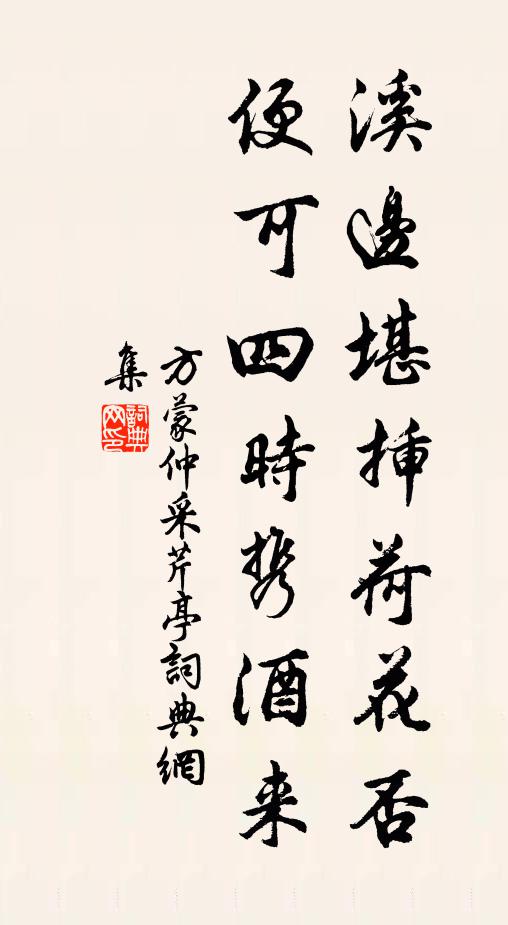 溪邊堪插荷花否
便可四時携酒来
方蒙仲采芹亭詞典網
集
詞典
网印